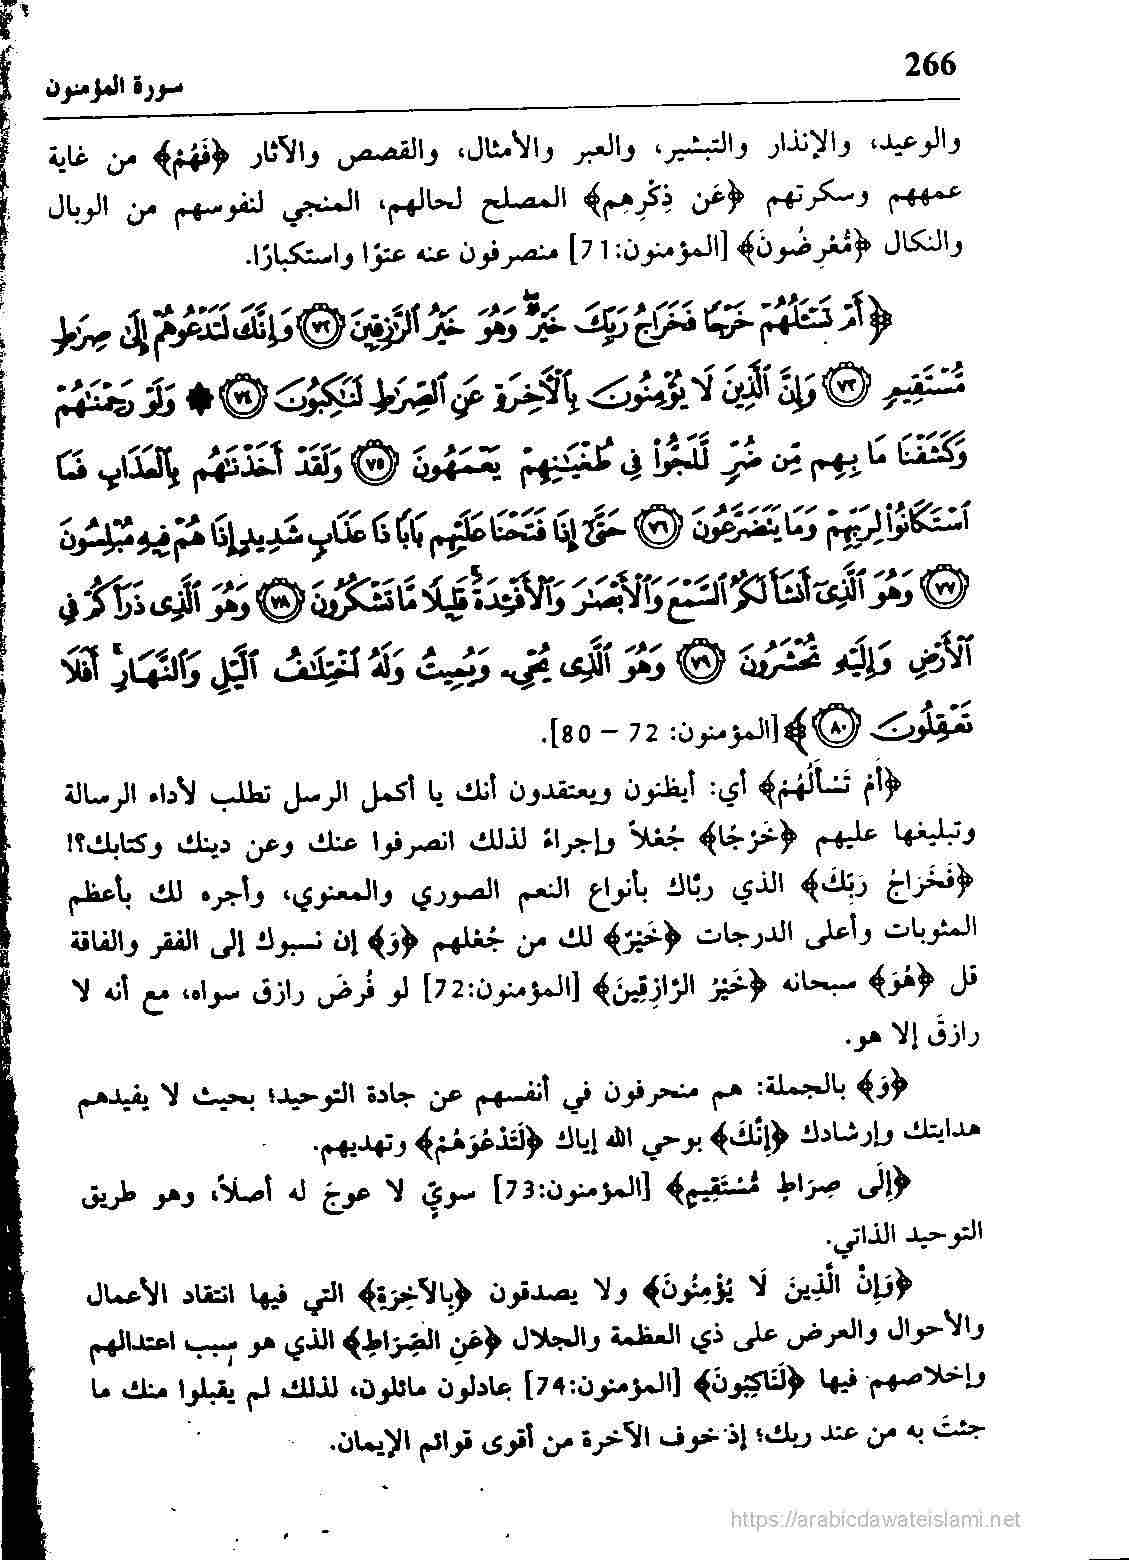 266
سورة المؤمنون
والوعيد، والإنذار والتبشير، والعبر والأمثال، والقصص والآثار ﴿فَهُمْ﴾ من غاية
عمههم وسكرتهم ﴿عَن ذِكْرِهِم﴾ المصلح لحالهم، المنجي لنفوسهم من الوبال
والنكال ﴿مُّعْرِضُونَ﴾ [المؤمنون:71] منصرفون عنه عتوًا واستكبارًا.
﴿أَمْ تَسْـَٔلُهُمْ خَرْجًا فَخَرَاجُ رَبِّكَ خَيْرٌ ۖ وَهُوَ خَيْرُ ٱلرَّٰزِقِينَ ٧٢ وَإِنَّكَ لَتَدْعُوهُمْ إِلَىٰ صِرَٰطٍ
مُّسْتَقِيمٍ ٧٣ وَإِنَّ ٱلَّذِينَ لَا يُؤْمِنُونَ بِٱلْـَٔاخِرَةِ عَنِ ٱلصِّرَٰطِ لَنَـٰكِبُونَ ٧٤ ۞ وَلَوْ رَحِمْنَـٰهُمْ
وَكَشَفْنَا مَا بِهِم مِّن ضُرٍّ لَّلَجُّوا۟ فِى طُغْيَـٰنِهِمْ يَعْمَهُونَ ٧٥ وَلَقَدْ أَخَذْنَـٰهُم بِٱلْعَذَابِ فَمَا
ٱسْتَكَانُوا۟ لِرَبِّهِمْ وَمَا يَتَضَرَّعُونَ ٧٦ حَتَّىٰٓ إِذَا فَتَحْنَا عَلَيْهِم بَابًا ذَا عَذَابٍ شَدِيدٍ إِذَا هُمْ فِيهِ مُبْلِسُونَ
٧٧ وَهُوَ ٱلَّذِىٓ أَنشَأَ لَكُمُ ٱلسَّمْعَ وَٱلْأَبْصَـٰرَ وَٱلْأَفْـِٔدَةَ ۚ قَلِيلًا مَّا تَشْكُرُونَ ٧٨ وَهُوَ ٱلَّذِى ذَرَأَكُمْ فِى
ٱلْأَرْضِ وَإِلَيْهِ تُحْشَرُونَ ٧٩ وَهُوَ ٱلَّذِى يُحْىِۦ وَيُمِيتُ وَلَهُ ٱخْتِلَـٰفُ ٱلَّيْلِ وَٱلنَّهَارِ ۚ أَفَلَا
تَعْقِلُونَ ٨٠﴾ [المؤمنون: 72 – 80].
﴿أَمْ تَسْأَلُهُمْ﴾ أي: أيظنون ويعتقدون أنك يا أكمل الرسل تطلب لأداء الرسالة
وتبليغها عليهم ﴿خَرْجًا﴾ جُعْلاً وإجراءً لذلك انصرفوا عنك وعن دينك وكتابك؟!
﴿فَخَرَاجُ رَبِّكَ﴾ الذي ربَّاك بأنواع النعم الصوري والمعنوي، وأجره لك بأعظم
المثوبات وأعلى الدرجات ﴿خَيْرٌ﴾ لك من جُعْلهم ﴿وَ﴾ إن نسبوك إلى الفقر والفاقة
قل ﴿هُوَ﴾ سبحانه ﴿خَيْرُ الرَّازِقِينَ﴾ [المؤمنون:72] لو فُرضَ رازق سواه، مع أنه لا
رازقَ إلا هو.
﴿وَ﴾ بالجملة: هم منحرفون في أنفسهم عن جادة التوحيد؛ بحيث لا يفيدهم
هدايتك وإرشادك ﴿إِنَّكَ﴾ بوحي الله إياك ﴿لَتَدْعُوَهُمْ﴾ وتهديهم.
﴿إِلَى صِرَاطٍ مُّسْتَقِيمٍ﴾ [المؤمنون:73] سويٍّ لا عوجَ له أصلاً، وهو طريق
التوحيد الذاتي.
﴿وَإِنَّ الَّذِينَ لَا يُؤْمِنُونَ﴾ ولا يصدقون ﴿بِالآخِرَةِ﴾ التي فيها انتقاد الأعمال
والأحوال والعرض على ذي العظمة والجلال ﴿عَنِ الصِّرَاطِ﴾ الذي هو سبب اعتدالهم
وإخلاصهم فيها ﴿لَنَاكِبُونَ﴾ [المؤمنون:74] عادلون مائلون، لذلك لم يقبلوا منك ما
جئتَ به من عند ربك؛ إذ خوف الآخرة من أقوى قوائم الإيمان.
https://arabicdawateislami.net